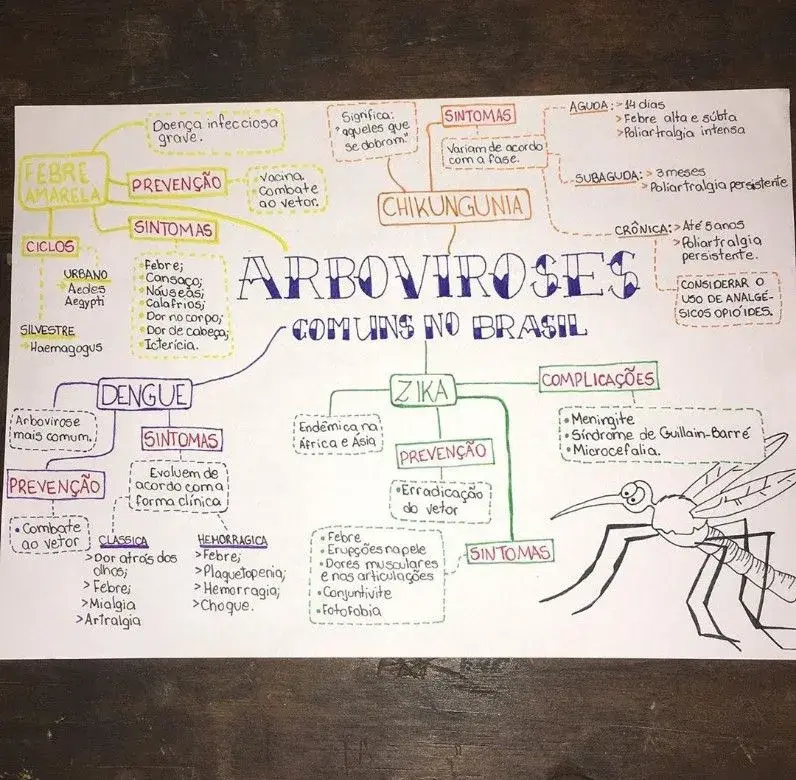 ARBOVIROSES
COMUNS NO BRASIL
FEBRE
AMARELA
Doença infecciosa
grave.
PREVENÇÃO
Vacina.
Combate
ao vetor.
SINTOMAS
Febre;
Cansaço;
Náuseas;
Calafrios;
Dor no corpo;
Dor de cabeça;
Icterícia.
CICLOS
URBANO
Aedes
Aegypti
SILVESTRE
Haemagogus
CHIKUNGUNIA
Significa:
"aqueles que
se dobram"
SINTOMAS
Variam de acordo
com a fase.
AGUDA: >14 dias
>Febre alta e súbta
>Poliartralgia intensa
SUBAGUDA: >3 meses
>Poliartralgia persistente
CRÔNICA: >Até 5 anos
>Poliartralgia
persistente.
CONSIDERAR O
USO DE ANALGÉ-
SICOS OPIÓIDES.
DENGUE
Arbovirose
mais comum.
PREVENÇÃO
• Combate
ao vetor
SINTOMAS
Evoluem de
acordo com a
forma clínica
CLASSICA
>Dor atrás dos
olhos;
>Febre;
>Mialgia
>Artralgia
HEMORRAGICA
>Febre;
>Plaquetopenia;
>Hemorragia;
>Choque.
ZIKA
Endêmica na
África e Asia
PREVENÇÃO
•Erradicação
do vetor
SINTOMAS
•Febre
•Erupções na pele
•Dores musculares
e nas articulações
•Conjuntivite
•Fotofobia
COMPLICAÇÕES
•Meningite
•Síndrome de Guillain-Barré
•Microcefalia.